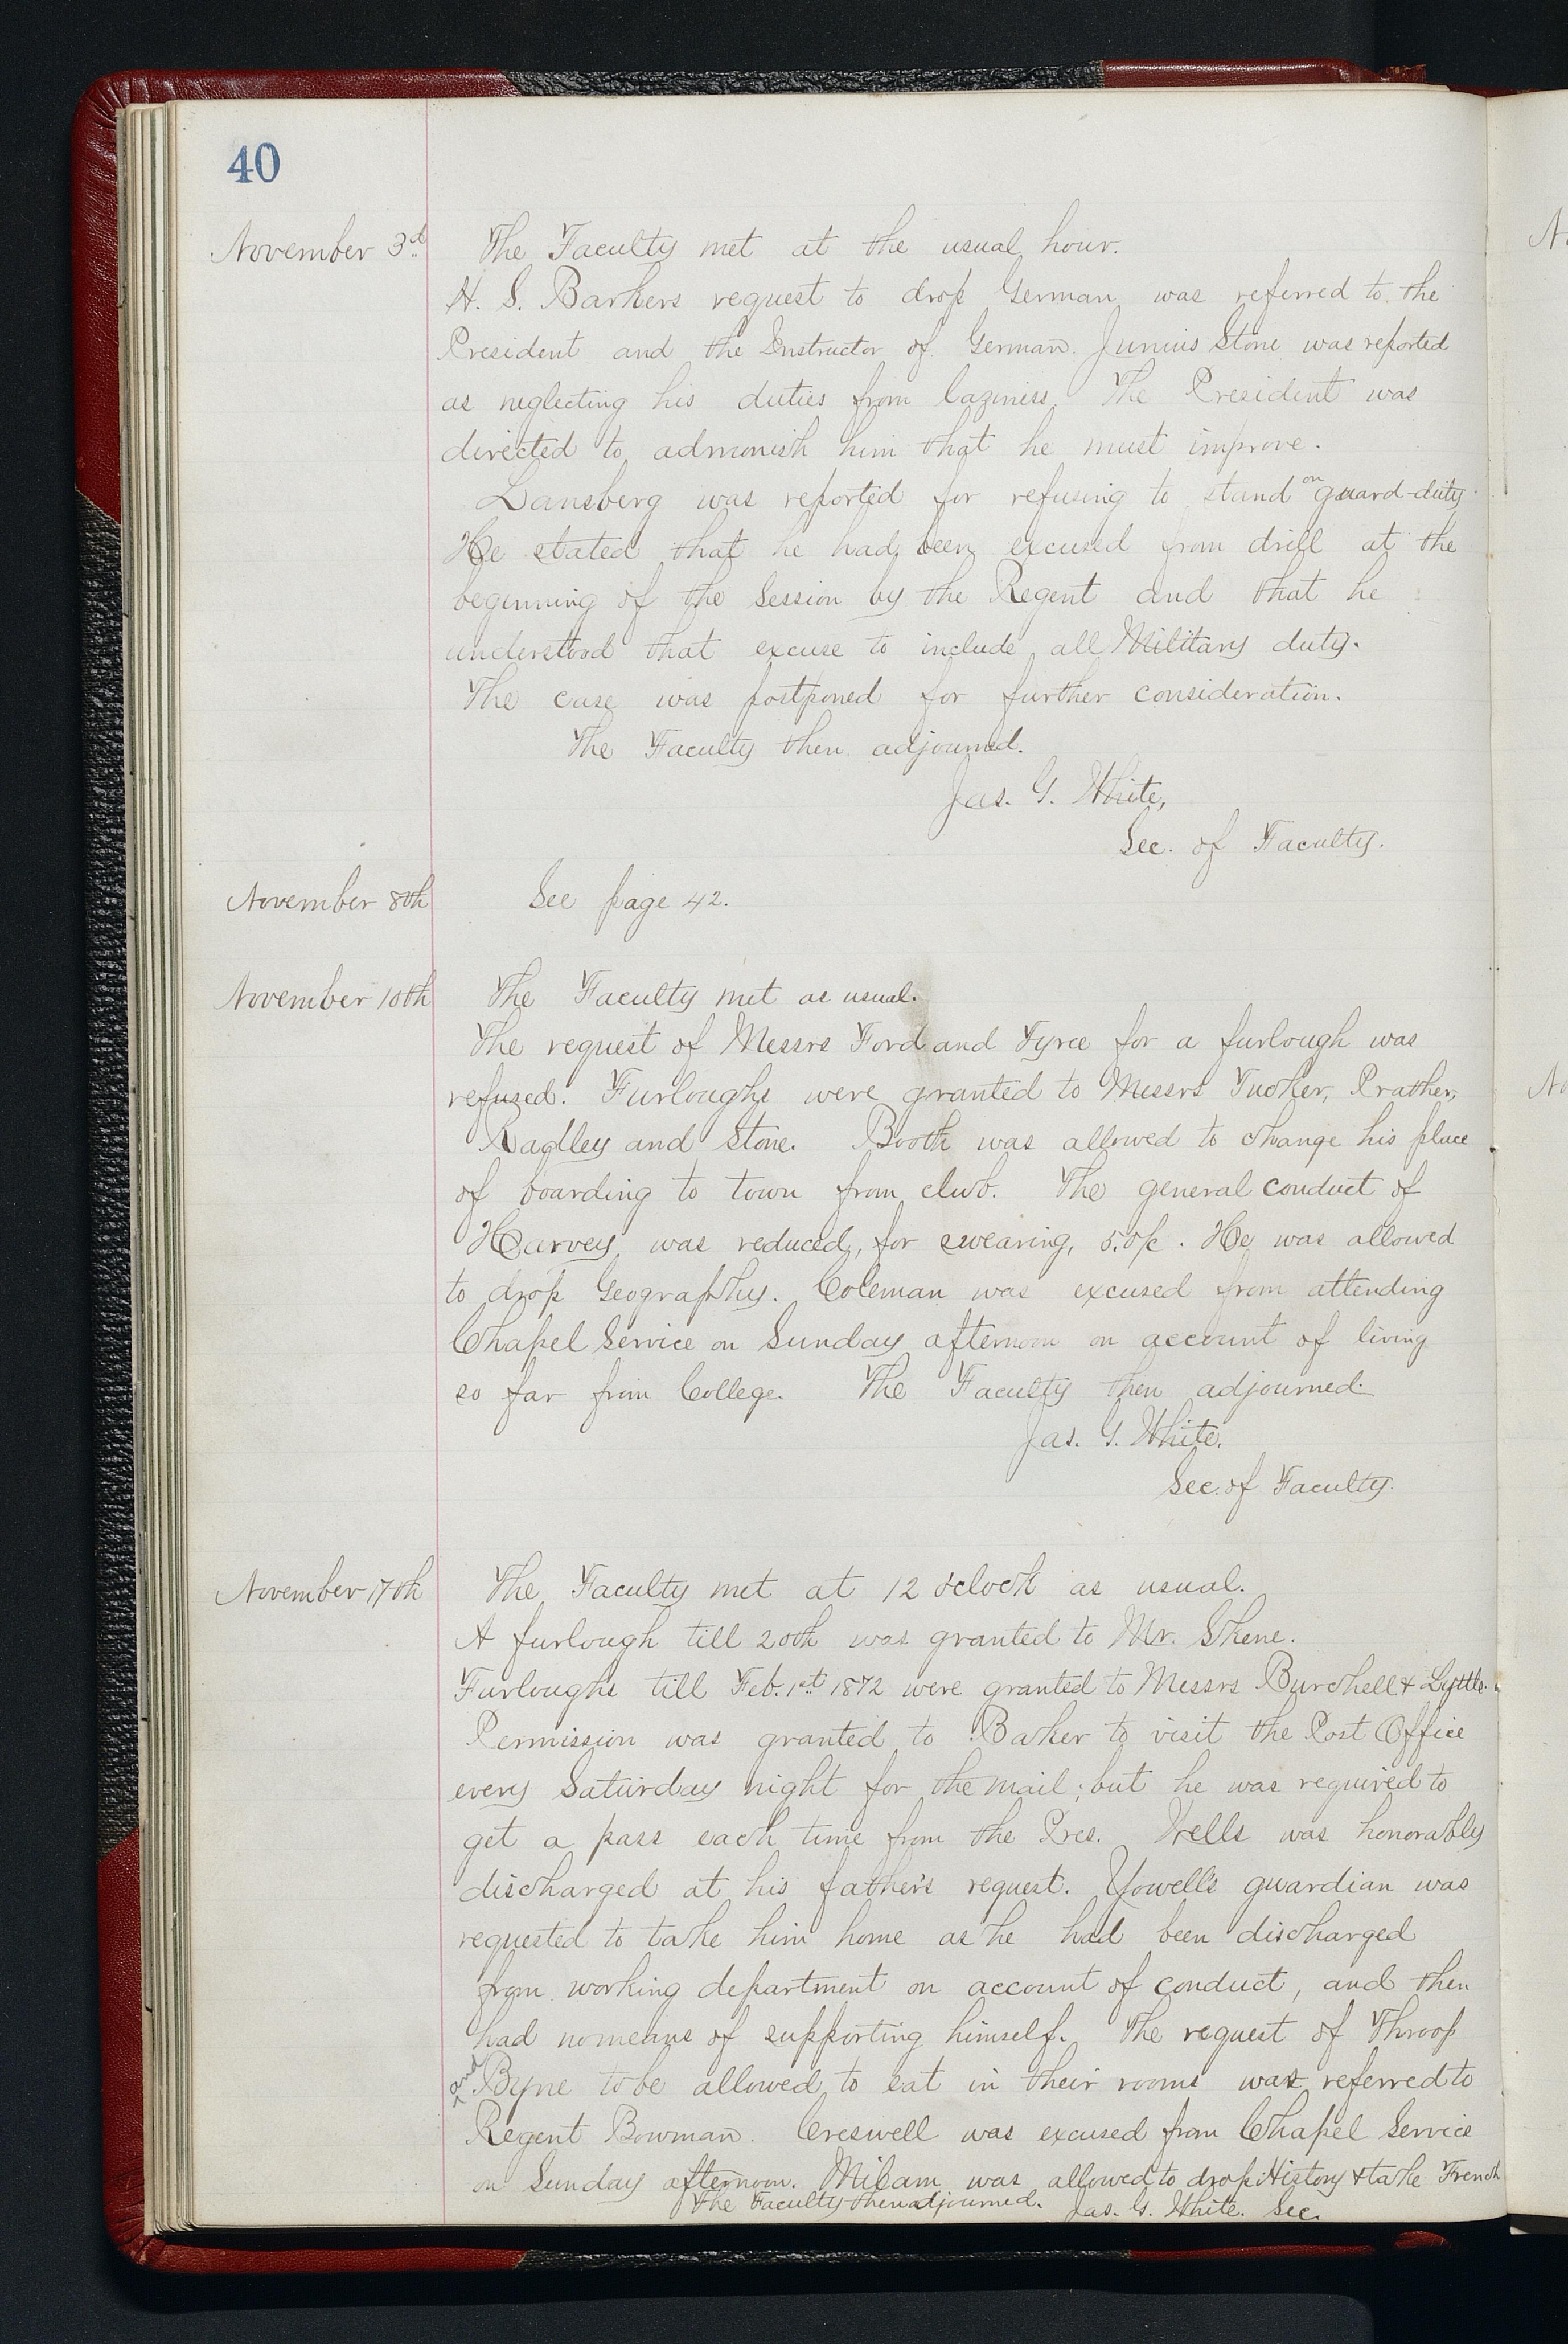 40
November 3d The Faculty met at the usual hour.
H. S. Barkers request to drop German was referred to the
President and the Instructor of German. Junius Stone was reported
as neglecting his duties from laziness. The President was
directed to admonish him that he must improve.
Lansberg was reported for refusing to stand on guard-duty.
He stated that he had been excused from drill at the
beginning of the Session by the Regent and that he
understood that excuse to include all Military duty.
The case was postponed for further consideration.
The Faculty then adjourned.
Jas. G. White,
Sec. of Faculty.
November 8th See page 42.
November 10th The Faculty met as usual.
The request of Messrs Ford and Tyree for a furlough was
refused. Furloughs were granted to Messrs Tucker, Prather,
Radley and Stone. Booth was allowed to change his place
of boarding to town from club. The general conduct of
Harvey was reduced, for swearing, He was allowed
to drop Geography. Coleman was excused from attending
Chapel Service on Sunday afternoon on account of living
so far from College. The Faculty then adjourned.
Jas. G. White.
Sec. of Faculty.
November 17th The Faculty met at 12 o'clock as usual.
A furlough till 20th was granted to Mr. Skene.
Furloughs till Feb. 1st 1872 were granted to Messrs Burchell & Lyttle.
Permission was granted to Baker to visit the Post Office
every Saturday night for the mail; but he was required to
get a pass each time from the Pres. Wells was honorably
discharged at his father's request. Yowell's guardian was
requested to take him home as he had been discharged
from working department on account of conduct, and then
had no means of supporting himself. The request of Throop
and Byne to be allowed to eat in their rooms was referred to
Regent Bowman. Creswell was excused from Chapel Service
on Sunday afternoon. Milam was allowed to drop History & take French
The Faculty then adjourned. Jas. G. White. Sec.